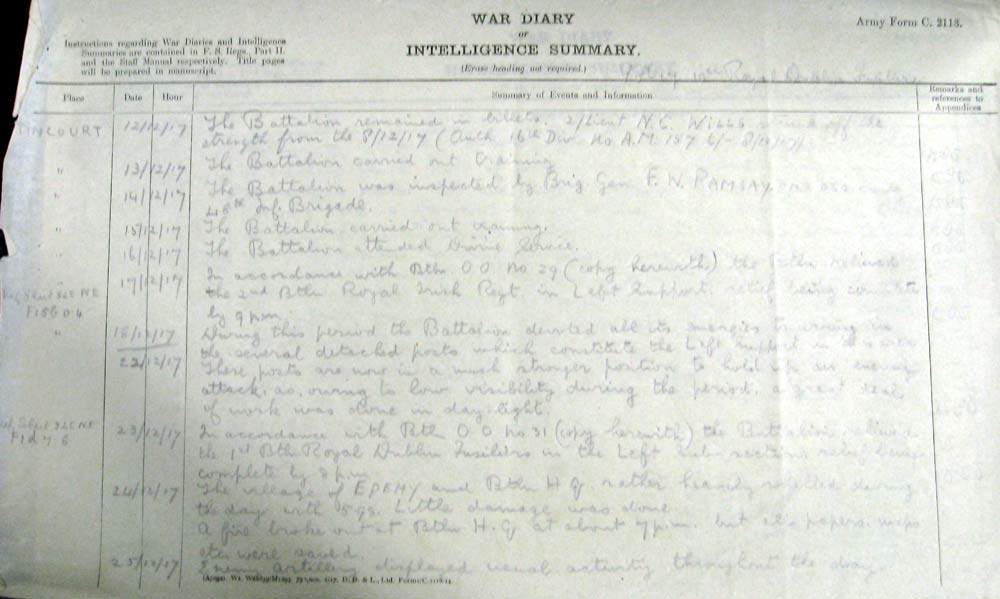 WAR DIARY
or
INTELLIGENCE SUMMARY.
(Erase heading not required.)
Army Form C. 2118.
Instructions regarding War Diaries and Intelligence
Summaries are contained in F. S. Regs., Part II.
and the Staff Manual respectively. Title pages
will be prepared in manuscript.
Royal Dublin Fusiliers
Place Date Hour Summary of Events and Information Remarks and references to Appendices
TINCOURT 12/12/17 The Battalion remained in billets. 2/Lieut N.C. struck off the
strength from the 8/12/17 (Auth 16th Div. No A.M. 157
" 13/12/17 The Battalion carried out training
" 14/12/17 The Battalion was inspected by Brig. Gen. F. W. RAMSAY
48th Inf. Brigade.
" 15/12/17 The Battalion carried out training.
" 16/12/17 The Battalion attended Divine Service.
17/12/17 In accordance with Bttn O O No 29 (copy herewith) the Bttn relieved
the 2nd Bttn Royal Irish Regt. in Left Support relief being complete
by 9 pm.
" 18/12/17 During this period the Battalion devoted all its energies to wiring in
the several detached posts which constitute the Left Support in
22/12/17 These posts are now in a much stronger position to hold up an enemy
attack, as, owing to low visibility during the period, a great deal
of work was done in day-light.
23/12/17 In accordance with Bttn O O No 31 (copy herewith) the Battalion relieved
the 1st Bttn Royal Dublin Fusiliers in the Left Sub-section, relief being
complete by 8 pm.
24/12/17 The village of EPEHY and Bttn H.Q. rather heavily shelled during
the day with 5.9s. Little damage was done.
A fire broke out at Bttn H.Q. at about 7 p.m. but all papers, maps
etc. were saved.
25/12/17 Enemy artillery displayed usual activity throughout the day.
D. D. & L., Ltd.